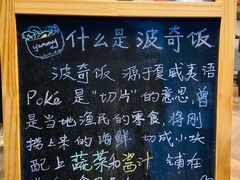 yummy
什么是波奇饭
波奇饭 源于夏威夷语
Poke 是“切片”的意思,曾
是当地渔民的零食,将刚
捞上来的海鲜 切成小块
配上蔬菜和酱汁 铺在